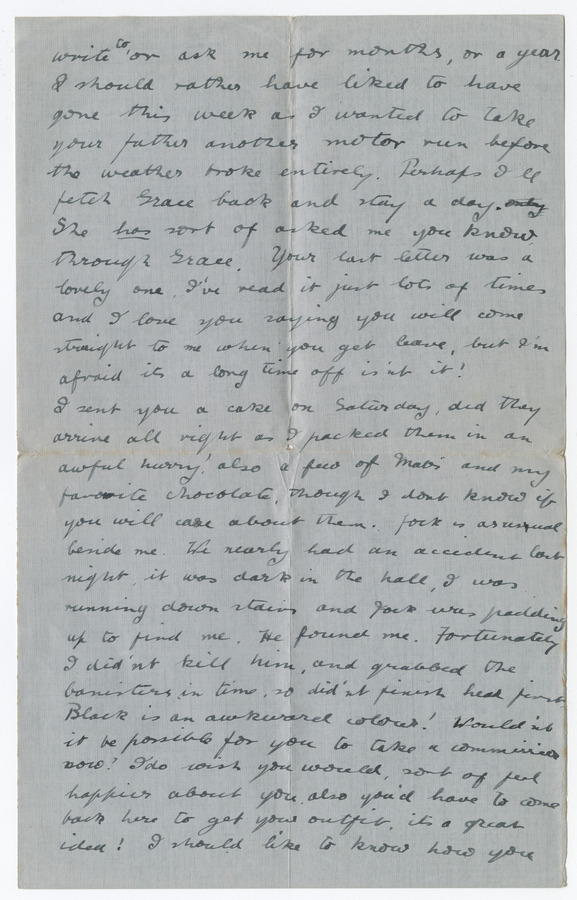 write to, or ask me for months, or a year
I should rather have liked to have
gone this week as I wanted to take
your father another motor run before
the weather broke entirely. Perhaps I'll
fetch Grace back and stay a day. only
She has sort of asked me you know
through Grace. Your last letter was a
lovely one, I've read it just lots of times
and I love you saying you will come
straight to me when you get leave, but I'm
afraid its a long time off is'nt it!
I sent you a cake on Saturday, did they
arrive all right as I packed them in an
awful hurry! also a few of Mabs and my
favorite chocolate, though I dont know if
you will care about them. Jock is as usual
beside me. We nearly had an accident last
night, it was dark in the hall, I was
running down stairs and Jock was padding
up to find me. He found me. Fortunately
I did'nt kill him, and grabbed the
banisters in time, so did'nt finish head first
Black is an awkward colour! Would'nt
it be possible for you to take a commission
now? I do wish you would, sort of feel
happier about you, also you'd have to come
back here to get your outfit, its a great
idea! I should like to know how you